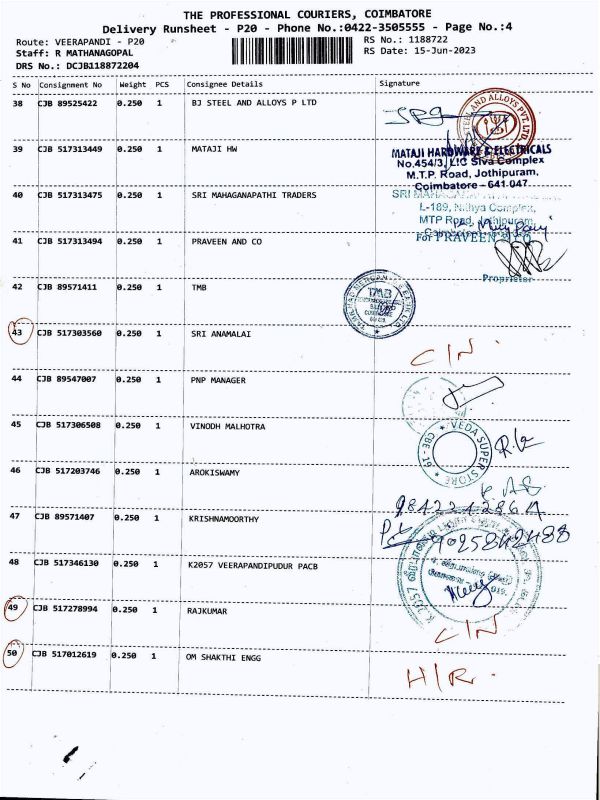 THE PROFESSIONAL COURIERS, COIMBATORE
Delivery Runsheet - P20 - Phone No.:0422-3505555 - Page No.:4
Route: VEERAPANDI - P20
RS No.: 1188722
Staff: R MATHANAGOPAL
RS Date: 15-Jun-2023
DRS No.: DCJB118872204
S No Consignment No Weight PCS Consignee Details Signature
38 CJB 89525422 0.250 1 BJ STEEL AND ALLOYS P LTD
STEEL AND ALLOYS PVT. LTD.
39 CJB 517313449 0.250 1 MATAJI HW
MATAJI HARDWARE & ELECTRICALS
No.454/3, LIC Siva Complex
M.T.P. Road, Jothipuram,
Coimbatore - 641 047.
40 CJB 517313475 0.250 1 SRI MAHAGANAPATHI TRADERS
L-189, Nithya Complex,
MTP Road, Jothipuram,
41 CJB 517313494 0.250 1 PRAVEEN AND CO
For PRAVEEN & CO
Proprietor
42 CJB 89571411 0.250 1 TMB
TMB
43 CJB 517303560 0.250 1 SRI ANAMALAI
C/N.
44 CJB 89547007 0.250 1 PNP MANAGER
45 CJB 517306508 0.250 1 VINODH MALHOTRA
VEDA SUPER STORE
CBE - 19
46 CJB 517203746 0.250 1 AROKISWAMY
47 CJB 89571407 0.250 1 KRISHNAMOORTHY
9025842488
48 CJB 517346130 0.250 1 K2057 VEERAPANDIPUDUR PACB
K.2057
49 CJB 517278994 0.250 1 RAJKUMAR
C/N
50 CJB 517012619 0.250 1 OM SHAKTHI ENGG
H/R.